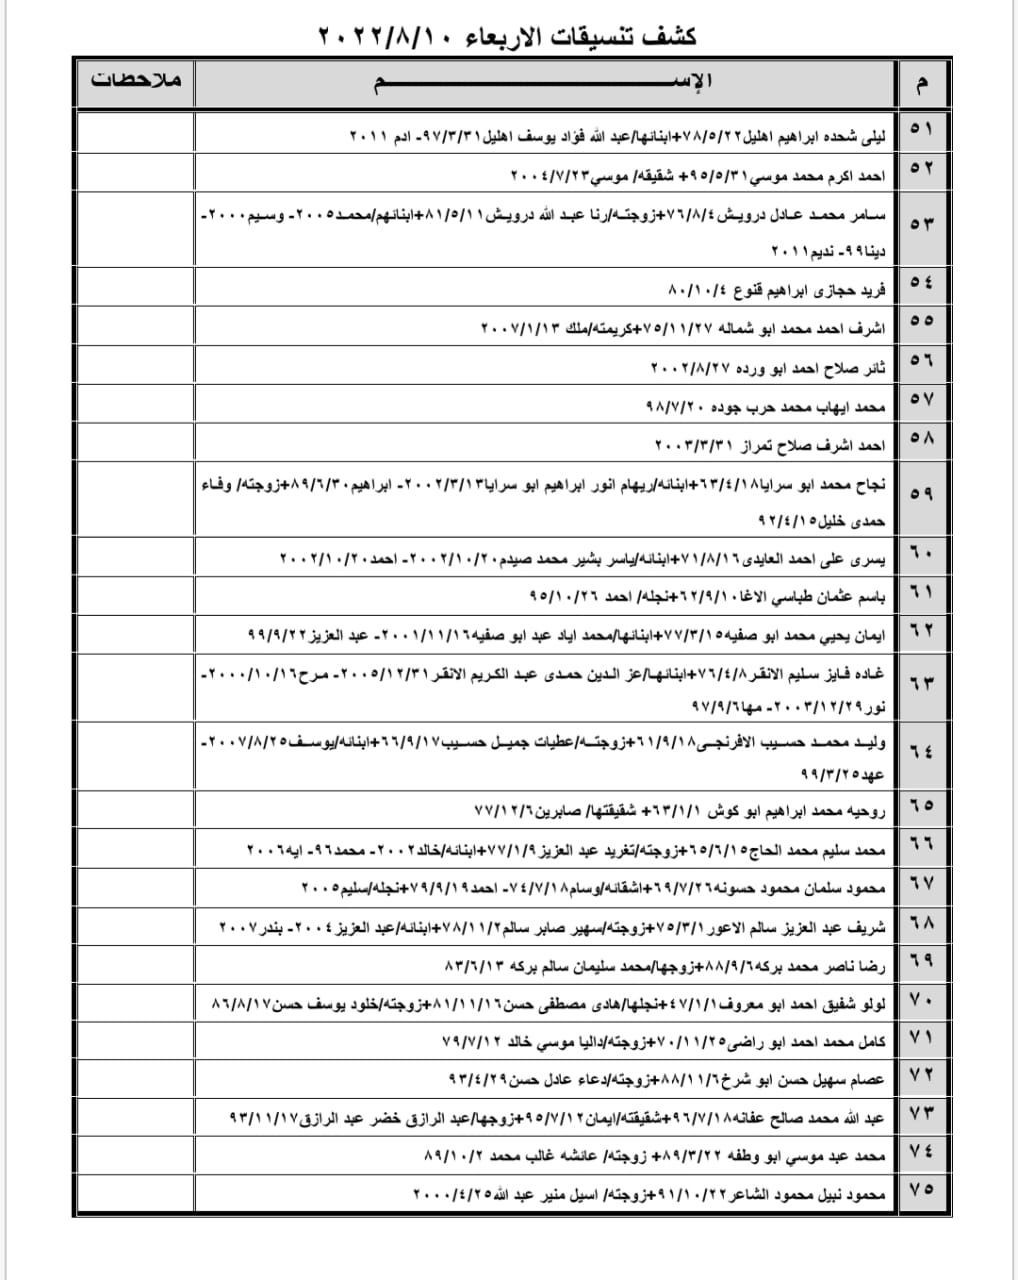 كشف تنسيقات الاربعاء ٢٠٢٢/٨/١٠
م الإســـم ملاحظات
٥١ ليلى شحده ابراهيم اهليل٧٨/٥/٢٢+ابنائها/عبد الله فؤاد يوسف اهليل٩٧/٣/٣١- ادم ٢٠١١
٥٢ احمد اكرم محمد موسي٩٥/٥/٣١+ شقيقه/ موسي٢٠٠٤/٧/٢٣
٥٣ سامر محمد عادل درويش٧٦/٨/٤+زوجته/رنا عبد الله درويش٨١/٥/١١+ابنائهم/محمد٢٠٠٥- وسيم٢٠٠٠-
دينا٩٩- نديم٢٠١١
٥٤ فريد حجازى ابراهيم قنوع ٨٠/١٠/٤
٥٥ اشرف احمد محمد ابو شماله ٧٥/١١/٢٧+كريمته/ملك ٢٠٠٧/١/١٣
٥٦ ثائر صلاح احمد ابو ورده ٢٠٠٢/٨/٢٧
٥٧ محمد ايهاب محمد حرب جوده ٩٨/٧/٢٠
٥٨ احمد اشرف صلاح تمراز ٢٠٠٣/٣/٣١
٥٩ نجاح محمد ابو سرايا٦٣/٤/١٨+ابنائه/ريهام انور ابراهيم ابو سرايا٢٠٠٢/٣/١٣- ابراهيم٨٩/٦/٣٠+زوجته/ وفاء
حمدى خليل٩٢/٤/١٥
٦٠ يسرى على احمد العايدى٧١/٨/١٦+ابنائه/ياسر بشير محمد صيدم٢٠٠٢/١٠/٢٠- احمد٢٠٠٢/١٠/٢٠
٦١ باسم عثمان طباسي الاغا٦٢/٩/١٠+نجله/ احمد ٩٥/١٠/٢٦
٦٢ ايمان يحيي محمد ابو صفيه٧٧/٣/١٥+ابنائها/محمد اياد عبد ابو صفيه٢٠٠١/١١/١٦- عبد العزيز٩٩/٩/٢٢
٦٣ غاده فايز سليم الانقر٧٦/٤/٨+ابنائها/عز الدين حمدى عبد الكريم الانقر٢٠٠٥/١٢/٣١- مرح٢٠٠٠/١٠/١٦-
نور٢٠٠٣/١٢/٢٩- مها٩٧/٩/٦
٦٤ وليد محمد حسيب الافرنجى٦١/٩/١٨+زوجته/عطيات جميل حسيب٦٦/٩/١٧+ابنائه/يوسف٢٠٠٧/٨/٢٥-
عهد٩٩/٣/٢٥
٦٥ روحيه محمد ابراهيم ابو كوش ٦٣/١/١+ شقيقتها/ صابرين٧٧/١٢/٦
٦٦ محمد سليم محمد الحاج٦٥/٦/١٥+زوجته/تغريد عبد العزيز٧٧/١/٩+ابنائه/خالد٢٠٠٢- محمد٩٦- ايه٢٠٠٦
٦٧ محمود سلمان محمود حسونه٦٩/٧/٢٦+اشقائه/وسام٧٤/٧/١٨- احمد٧٩/٩/١٩+نجله/سليم٢٠٠٥
٦٨ شريف عبد العزيز سالم الاعور٧٥/٣/١+زوجته/سهير صابر سالم٧٨/١١/٢+ابنائه/عبد العزيز٢٠٠٤- بندر٢٠٠٧
٦٩ رضا ناصر محمد بركه٨٨/٩/٦+زوجها/محمد سليمان سالم بركه ٨٣/٦/١٣
٧٠ لولو شفيق احمد ابو معروف٤٧/١/١+نجلها/هادى مصطفى حسن٨١/١١/١٦+زوجته/خلود يوسف حسن٨٦/٨/١٧
٧١ كامل محمد احمد ابو راضى٧٠/١١/٢٥+زوجته/داليا موسي خالد ٧٩/٧/١٢
٧٢ عصام سهيل حسن ابو شرخ٨٨/١١/٦+زوجته/دعاء عادل حسن٩٣/٤/٢٩
٧٣ عبد الله محمد صالح عفانه٩٦/٧/١٨+شقيقته/ايمان٩٥/٧/١٢+زوجها/عبد الرازق خضر عبد الرازق٩٣/١١/١٧
٧٤ محمد عبد موسي ابو وطفه ٨٩/٣/٢٢+ زوجته/ عائشه غالب محمد ٨٩/١٠/٢
٧٥ محمود نبيل محمود الشاعر٩١/١٠/٢٢+زوجته/ اسيل منير عبد الله٢٠٠٠/٤/٢٥